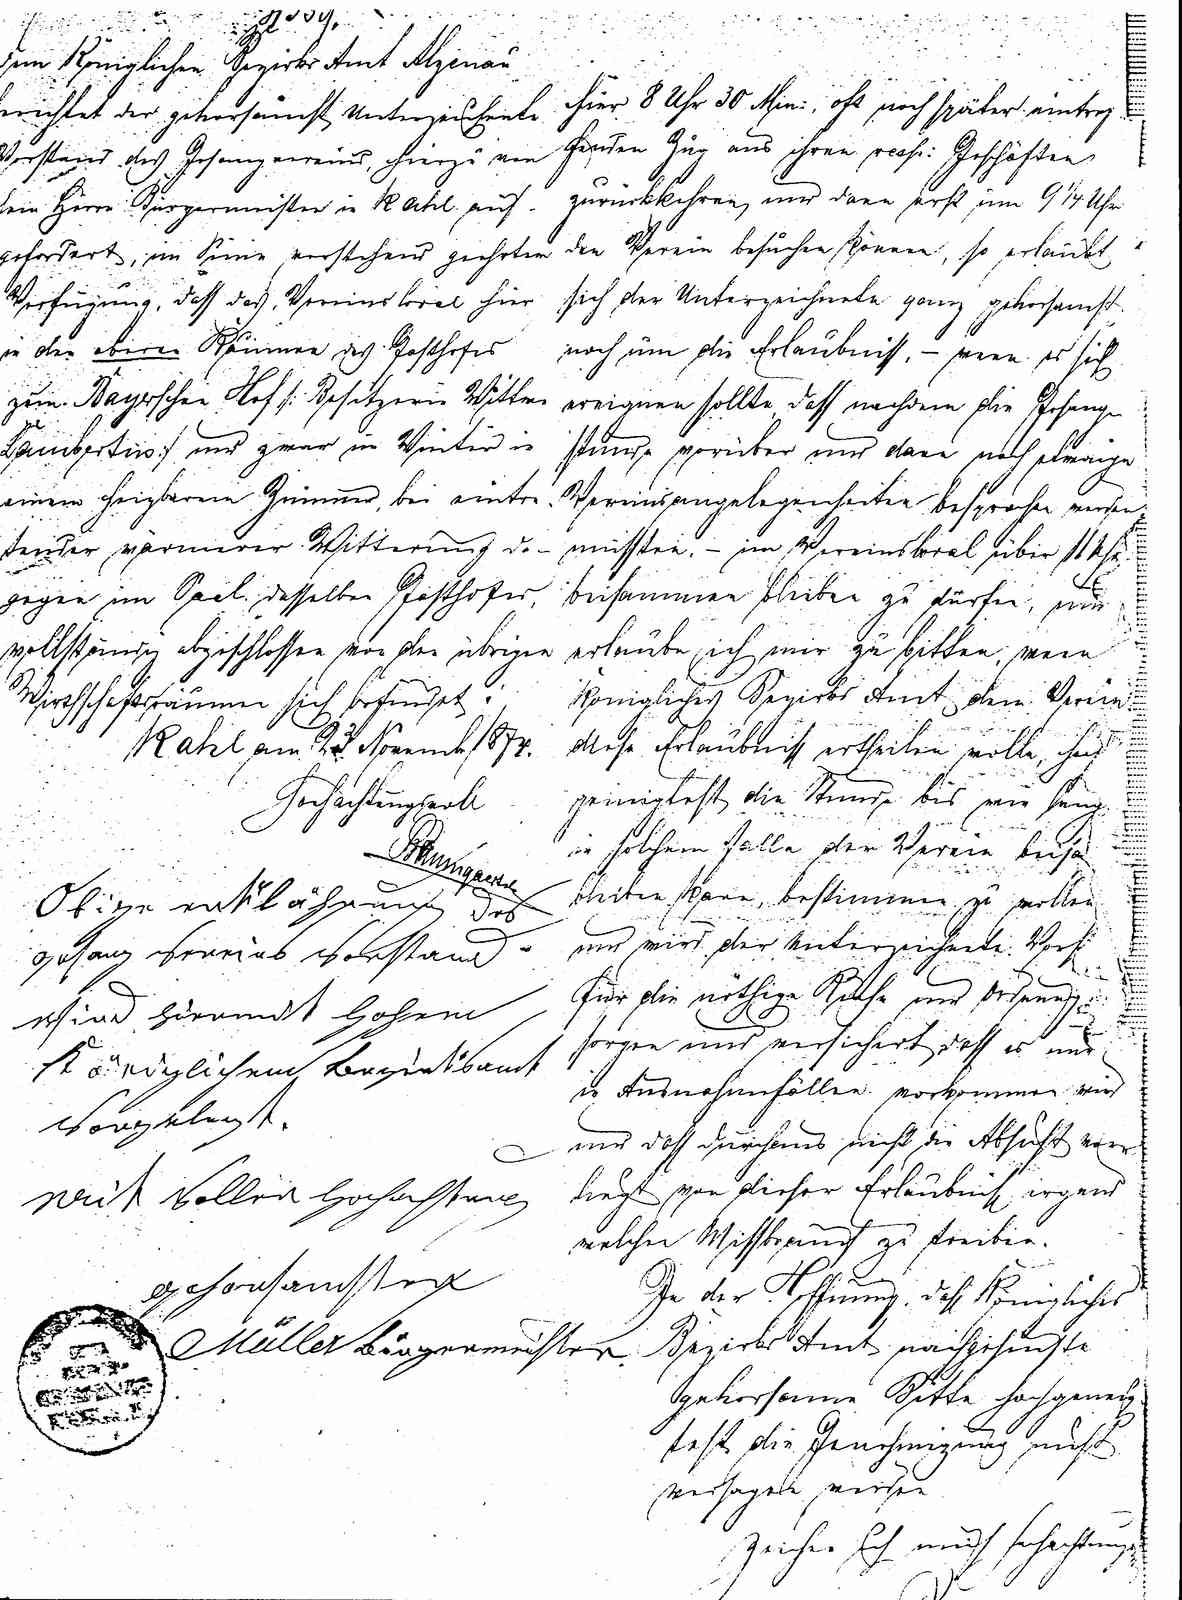 dem Königlichen Bezirks Amt Alzenau
berichtet der gehorsamst Unterzeichnete
Vorstand des Gesangvereins, hierzu von
dem Herrn Bürgermeister in Kahl auf-
gefordert, im Sinne vorstehend geehrter
Verfügung, dass das Vereinslocal hier
in den oberen Räumen des Gasthofes
zum Bayerschen Hof /: Besitzerin Wittwe
:/ und zwar im Winter in
einem heizbarem Zimmer, bei eintre-
tender wärmerer Witterung da-
gegen im Saal desselben Gasthofes,
vollständig abgeschlossen von den übrigen
Wirthschaftsräumen sich befindet.
Kahl am Novemb. 1874.
Hochachtungsvoll
Baumgarten
Obige des
gesang Vereins Vorstand
wird hiermit hohem
Königlichem Bezirksamt
vorgelegt.
mit voller hochachtung
gehorsamster
Müller Bürgermeister
hier 8 Uhr 30 Min:, oft noch später eintref
fenden Zug aus ihren resp: Geschäften
zurückkehren, und dann erst um 9 1/4 Uhr
den Verein besuchen können, so erlaubt
sich der Unterzeichnete ganz gehorsamst
noch um die Erlaubniss, – wenn es sich
ereignen sollte dass nachdem die Gesang-
stunde vorüber und dann noch etwaige
Vereinsangelegenheiten besprochen werden
müssten, – im Vereinslocal über 11 Uhr
beisammen bleiben zu dürfen, und
erlaube ich mir zu bitten, wenn
Königliches Bezirks Amt dem Verein
diese Erlaubniss ertheilen wolle, hoch
geneigtest die Stunde bis wie lang
in solchem Falle der Verein beisa
bleiben kann, bestimmen zu wollen
und wird der Unterzeichnete Vorst
für die nöthige Ruhe und Ordnung
sorgen und versichert dass es nur
in Ausnahmfällen vorkommen wird
und dass durchaus nicht die Absicht vor
liegt von dieser Erlaubniss irgend
welchen Missbrauch zu treiben.
In der Hoffnung, dass Königliches
Bezirks Amt nachgesuchte
gehorsame Bitte hochgeneig
test die Genehmigung nicht
versagen werde
Zeichne Ich mich hochachtungs